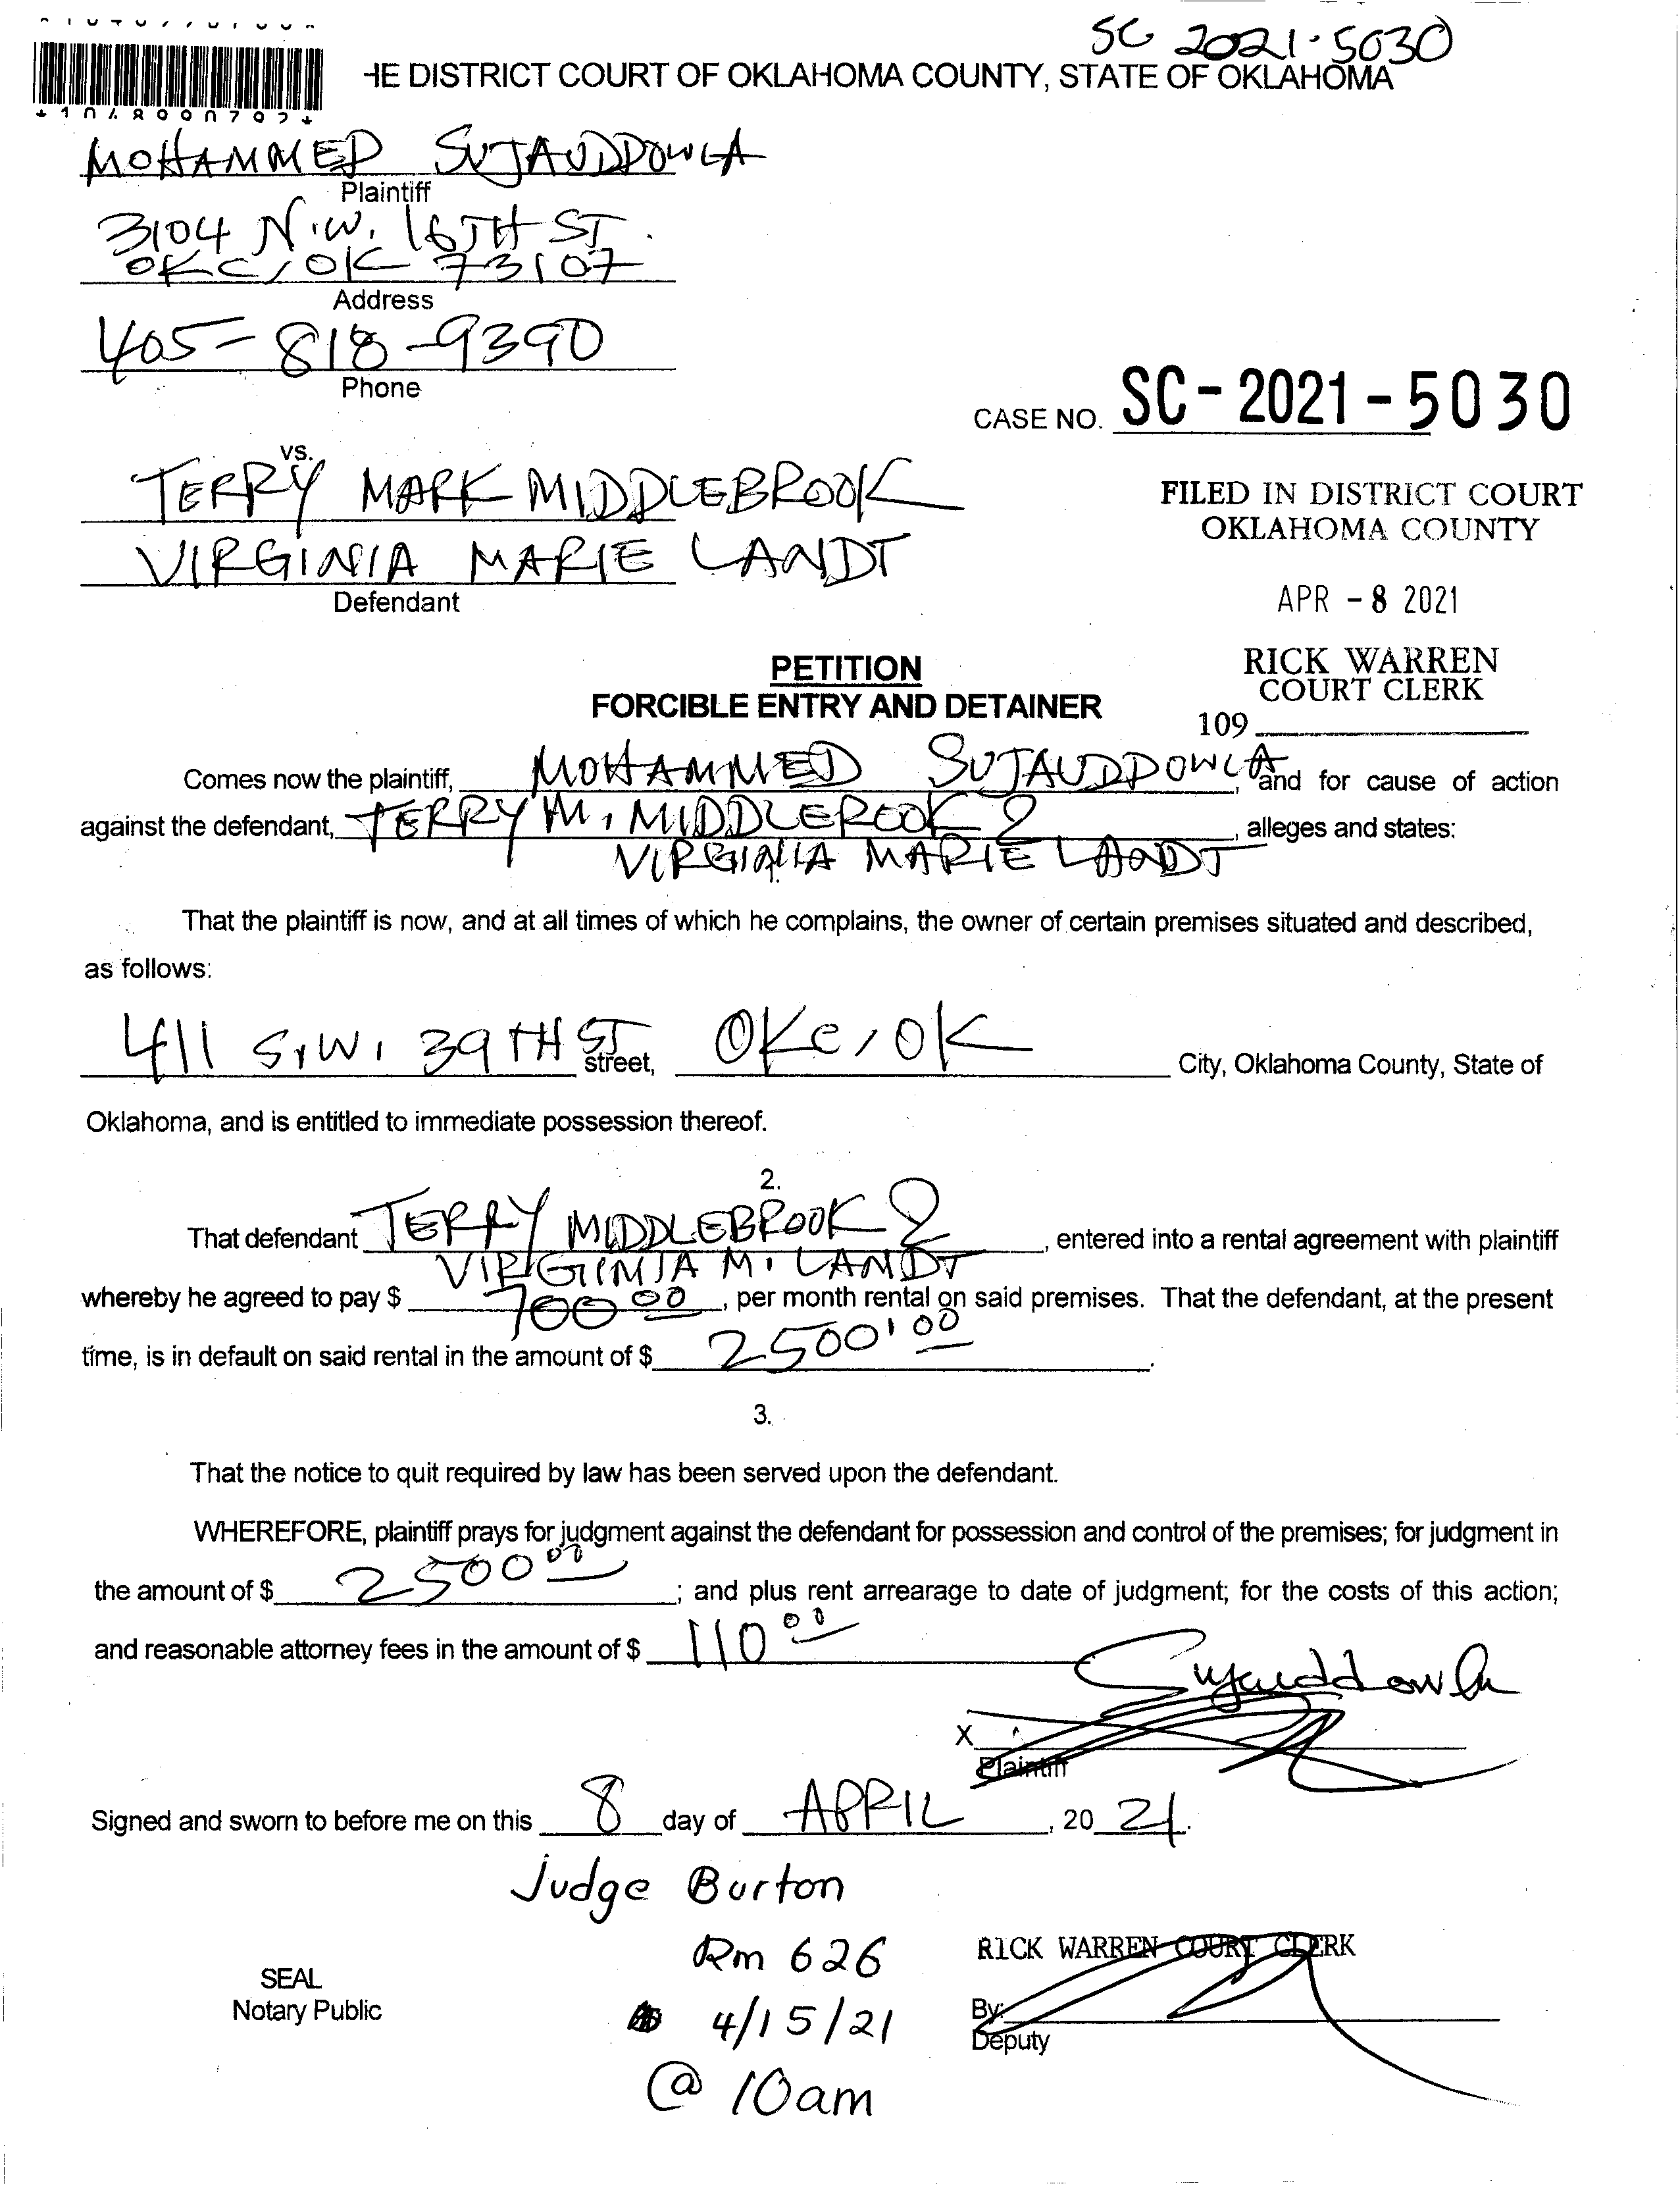 SC 2021-5030
HE DISTRICT COURT OF OKLAHOMA COUNTY, STATE OF OKLAHOMA
MOHAMMED SUJAUDDOWLA
Plaintiff
3104 N.W. 16TH ST.
OKC, OK 73107
Address
405-818-9390
Phone
CASE NO. SC-2021-5030
vs.
TERRY MARK MIDDLEBROOK
VIRGINIA MARIE LANDT
Defendant
FILED IN DISTRICT COURT
OKLAHOMA COUNTY
APR -8 2021
RICK WARREN
COURT CLERK
109
PETITION
FORCIBLE ENTRY AND DETAINER
Comes now the plaintiff, MOHAMMED SUJAUDDOWLA, and for cause of action
against the defendant, TERRY M. MIDDLEROOK &, alleges and states:
VIRGINIA MARIE LANDT
That the plaintiff is now, and at all times of which he complains, the owner of certain premises situated and described,
as follows:
411 S.W. 39TH ST street, OKC, OK City, Oklahoma County, State of
Oklahoma, and is entitled to immediate possession thereof.
2.
That defendant TERRY MIDDLEBROOK &, entered into a rental agreement with plaintiff
VIRGINIA M. LANDT
whereby he agreed to pay $ 700 00, per month rental on said premises. That the defendant, at the present
time, is in default on said rental in the amount of $ 2500.00.
3.
That the notice to quit required by law has been served upon the defendant.
WHEREFORE, plaintiff prays for judgment against the defendant for possession and control of the premises; for judgment in
the amount of $ 2500 00; and plus rent arrearage to date of judgment; for the costs of this action;
and reasonable attorney fees in the amount of $ 110 00
Sujauddowla
X
Plaintiff
Signed and sworn to before me on this 8 day of APRIL, 20 21.
Judge Burton
Rm 626
4/15/21
@ 10am
SEAL
Notary Public
RICK WARREN COURT CLERK
By:
Deputy